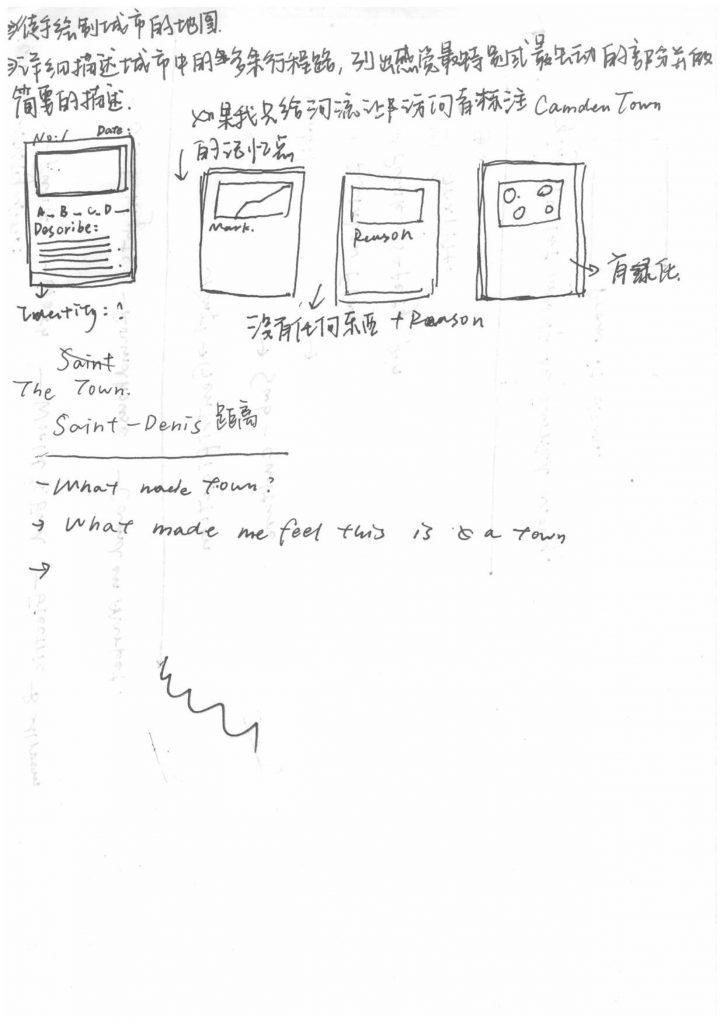 徒手绘制城市的地图.
详细描述城市中的多条行程路,列出感觉最特别或最生动的部分并做
简要的描述.
如果我只给河流让访问者标注 Camden Town
的记忆点
No:1 Date:
A_ B_ C_ D_
Describe:
Mark.
Reason
有绿化.
Identity:?
没有任何东西 + Reason
Saint
The Town.
Saint-Denis 距离
-What made town?
→ What made me feel this is a town
→